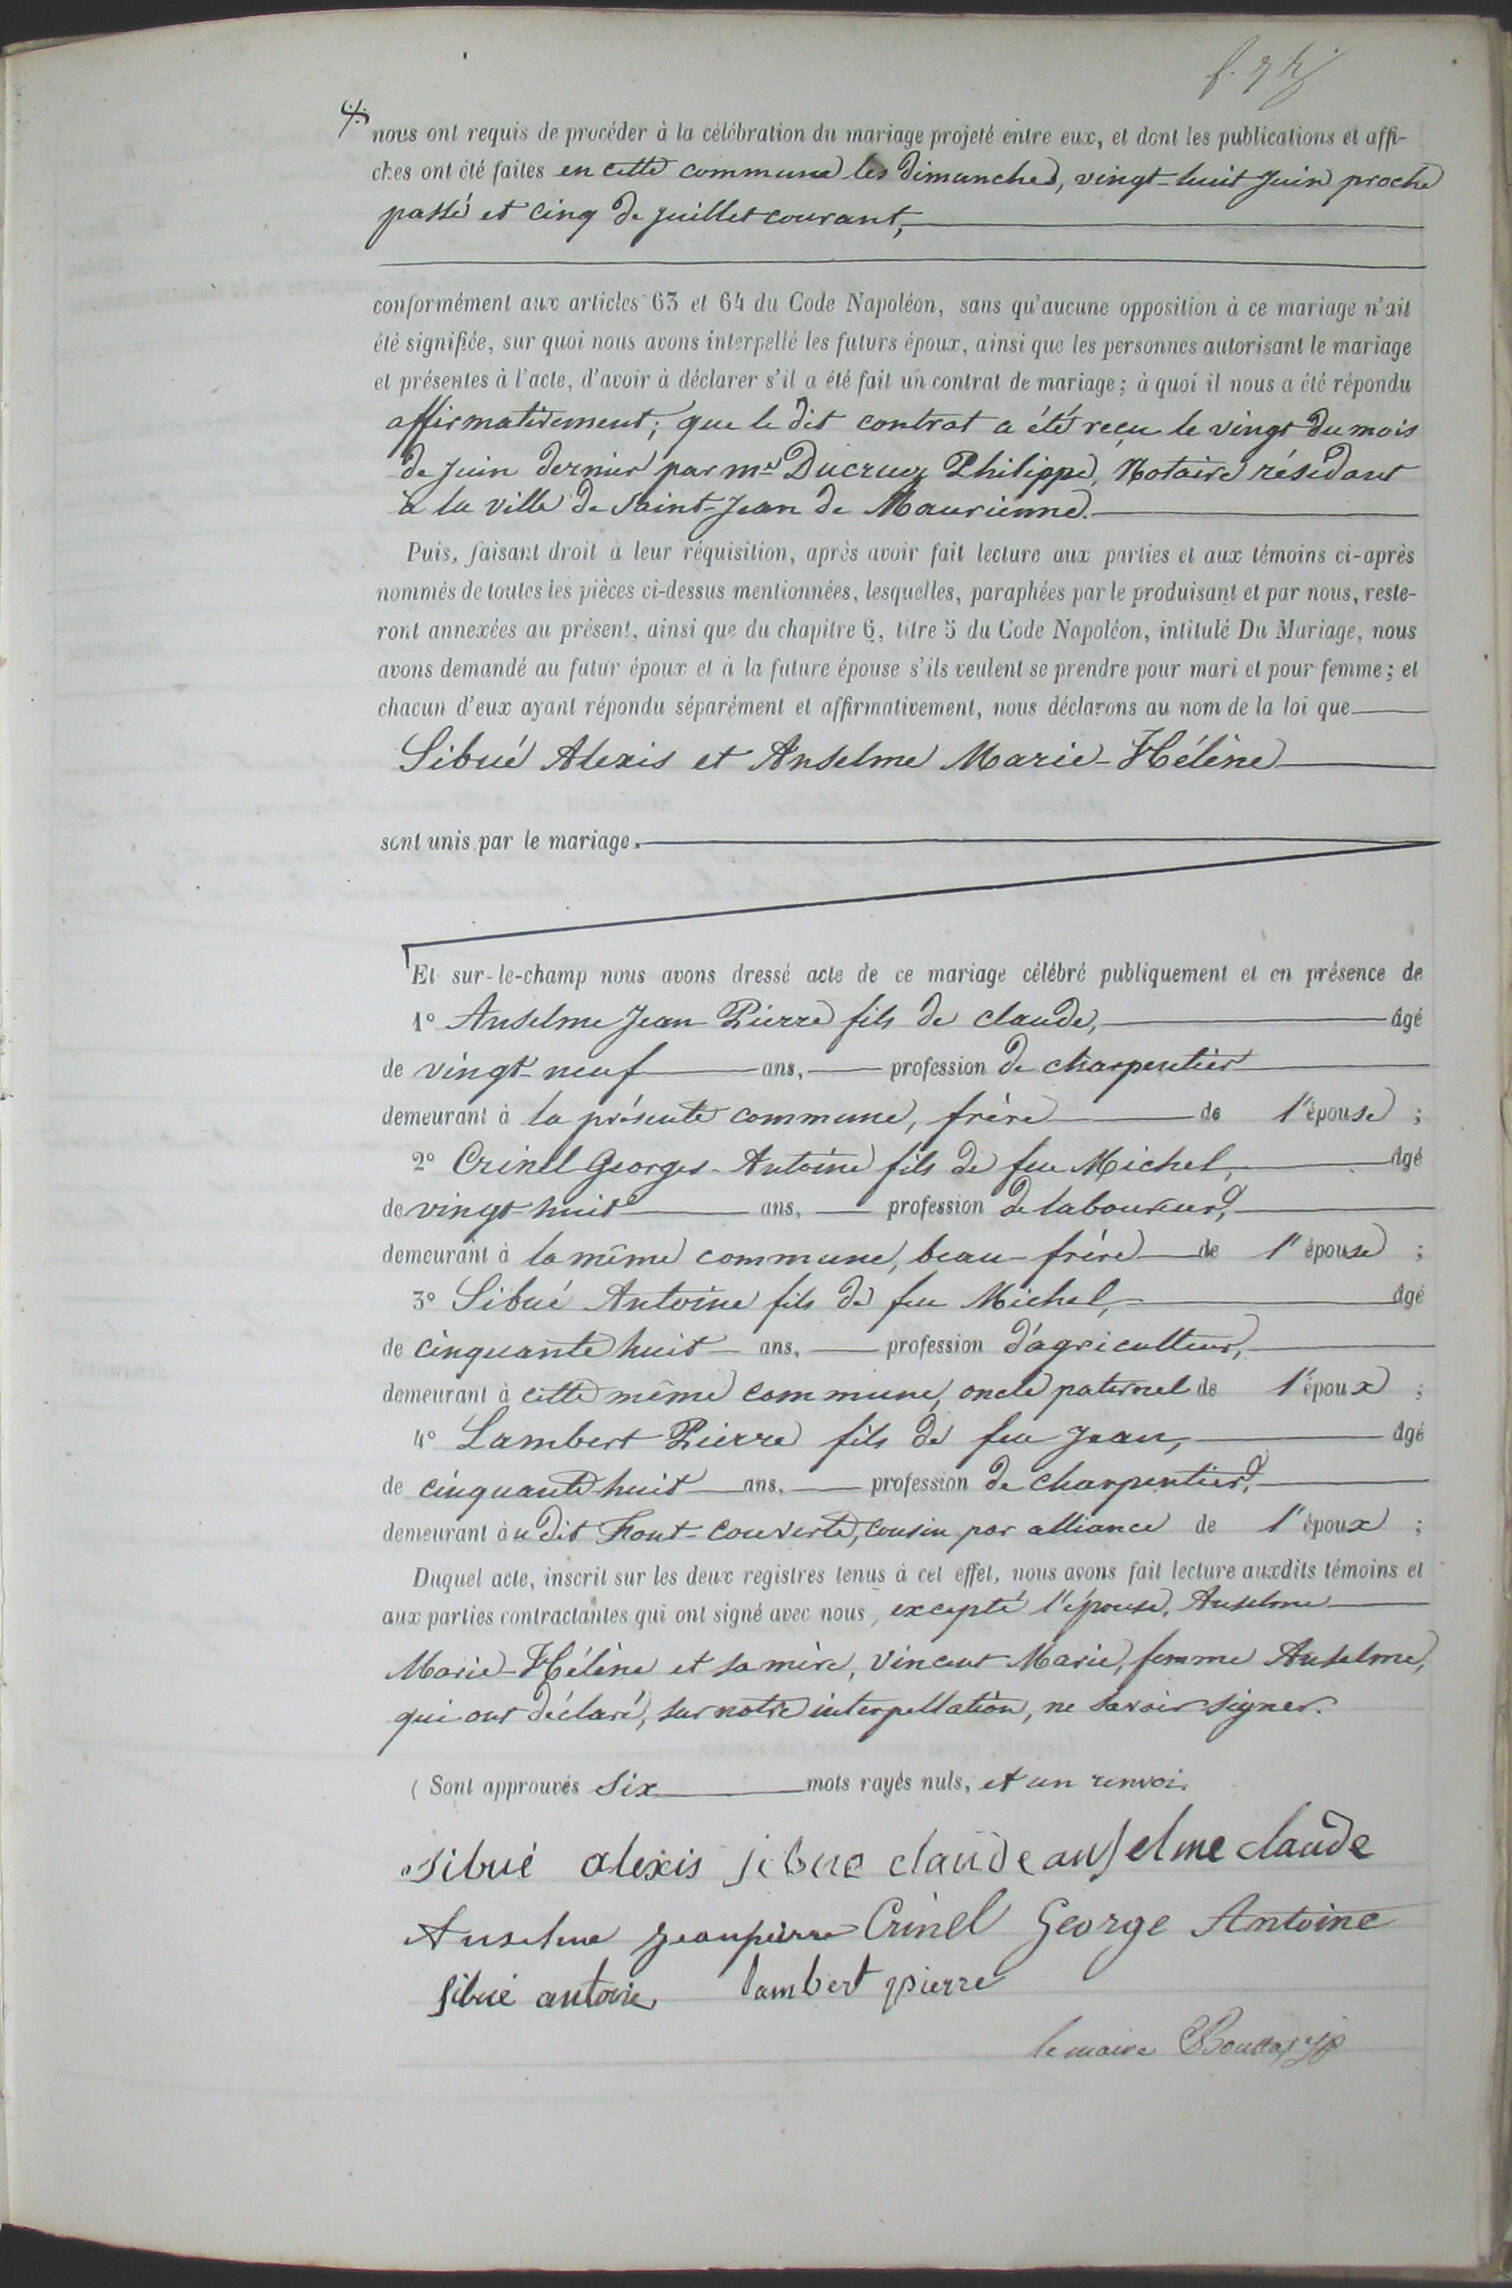 nous ont requis de procéder à la célébration du mariage projeté entre eux, et dont les publications et affi-
ches ont été faites en cette commune les dimanches, vingt-huit Juin proche
passé et cinq de juillet courant,
conformément aux articles 63 et 64 du Code Napoléon, sans qu'aucune opposition à ce mariage n'ait
été signifiée, sur quoi nous avons interpellé les futurs époux, ainsi que les personnes autorisant le mariage
et présentes à l'acte, d'avoir à déclarer s'il a été fait un contrat de mariage; à quoi il nous a été répondu
affirmativement; que le dit contrat a été reçu le vingt du mois
de Juin dernier par me Ducruez Philippe, Notaire résidant
à la ville de Saint-Jean de Maurienne.
Puis, faisant droit à leur réquisition, après avoir fait lecture aux parties et aux témoins ci-après
nommés de toutes les pièces ci-dessus mentionnées, lesquelles, paraphées par le produisant et par nous, reste-
ront annexées au présent, ainsi que du chapitre 6, titre 5 du Code Napoléon, intitulé Du Mariage, nous
avons demandé au futur époux et à la future épouse s'ils veulent se prendre pour mari et pour femme; et
chacun d'eux ayant répondu séparément et affirmativement, nous déclarons au nom de la loi que
Sibué Alexis et Anselme Marie-Hélène
sont unis par le mariage.
Et sur-le-champ nous avons dressé acte de ce mariage célébré publiquement et en présence de
1° Anselme Jean Pierre fils de claude, âgé
de vingt-neuf ans, profession de charpentier
demeurant à la présente commune, frère de l'épouse ;
2° Crinel Georges-Antoine fils de feu Michel, âgé
de vingt-huit ans, profession de laboureur,
demeurant à la même commune, beau-frère de l'épouse ;
3° Sibué Antoine fils de feu Michel, âgé
de cinquante huit ans, profession d'agriculteur,
demeurant à cette même commune, oncle paternel de l'époux ;
4° Lambert Pierre fils de feu Jean, âgé
de cinquante-huit ans, profession de charpentier,
demeurant au dit Font-couverte, cousin par alliance de l'époux ;
Duquel acte, inscrit sur les deux registres tenus à cet effet, nous avons fait lecture auxdits témoins et
aux parties contractantes qui ont signé avec nous, excepté l'épouse, Anselme
Marie-Hélène et sa mère, Vincent Marie, femme Anselme,
qui ont déclaré, sur notre interpellation, ne savoir signer.
(Sont approuvés six mots rayés nuls, et un renvoi.
sibué alexis sibue claude anselme claude
Anselme jeanpierre Crinel George Antoine
sibué antoine lambert pierre
le maire